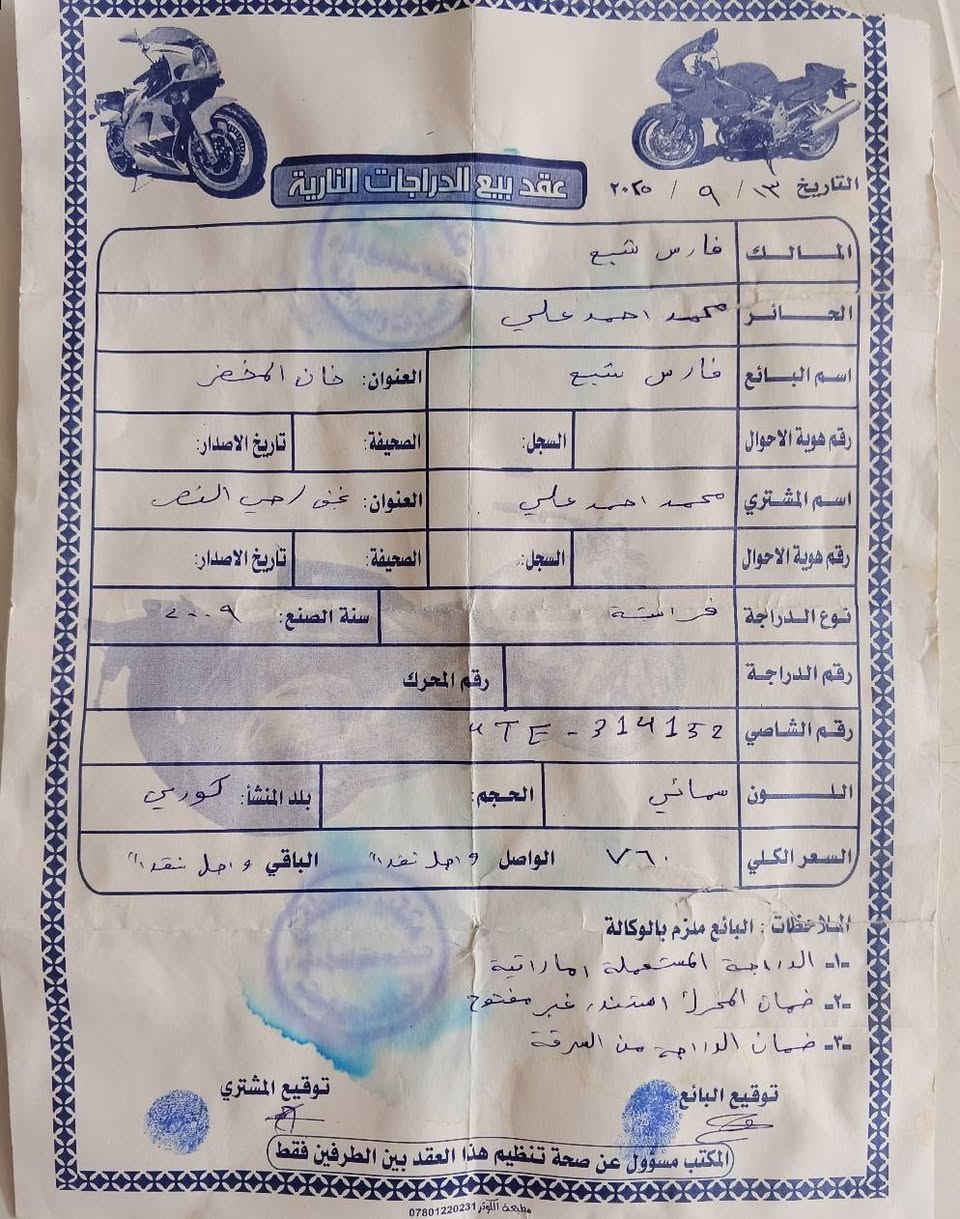 عقد بيع الدراجات النارية
التاريخ ١٣ / ٩ / ٢٠٢٥
المالك فارس شبع
الحائز محمد احمد علي
اسم البائع فارس شبع العنوان: خان المخضر
رقم هوية الاحوال السجل: الصحيفة: تاريخ الاصدار:
اسم المشتري محمد احمد علي العنوان: نجف / حي النصر
رقم هوية الاحوال السجل: الصحيفة: تاريخ الاصدار:
نوع الدراجة فراشة سنة الصنع: ٢٠٠٩
رقم الدراجة رقم المحرك
رقم الشاصي TE - 314152
اللون سمائي الحجم: بلد المنشأ: كوري
السعر الكلي ٧٦٠ الواصل واصل نقداً الباقي واصل نقداً
الملاحظات : البائع ملزم بالوكالة
-١- الدراجة المستعملة اماراتية
-٢- ضمان المحرك استندر غير مفتوح
-٣- ضمان الدراجة من السرقة
توقيع البائع توقيع المشتري
المكتب مسؤول عن صحة تنظيم هذا العقد بين الطرفين فقط
مطبعة الكوثر 07801220231